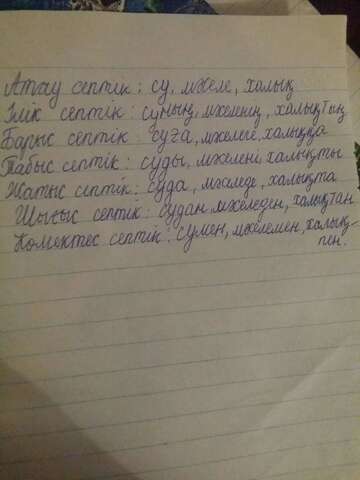 Атау септік: су, мәселе, халық
Ілік септік: судың, мәселенің, халықтың
Барыс септік: суға, мәселеге, халыққа
Табыс септік: суды, мәселені, халықты
Жатыс септік: суда, мәселеде, халықта
Шығыс септік: судан, мәселеден, халықтан
Көмектес септік: сумен, мәселемен, халық-
пен.